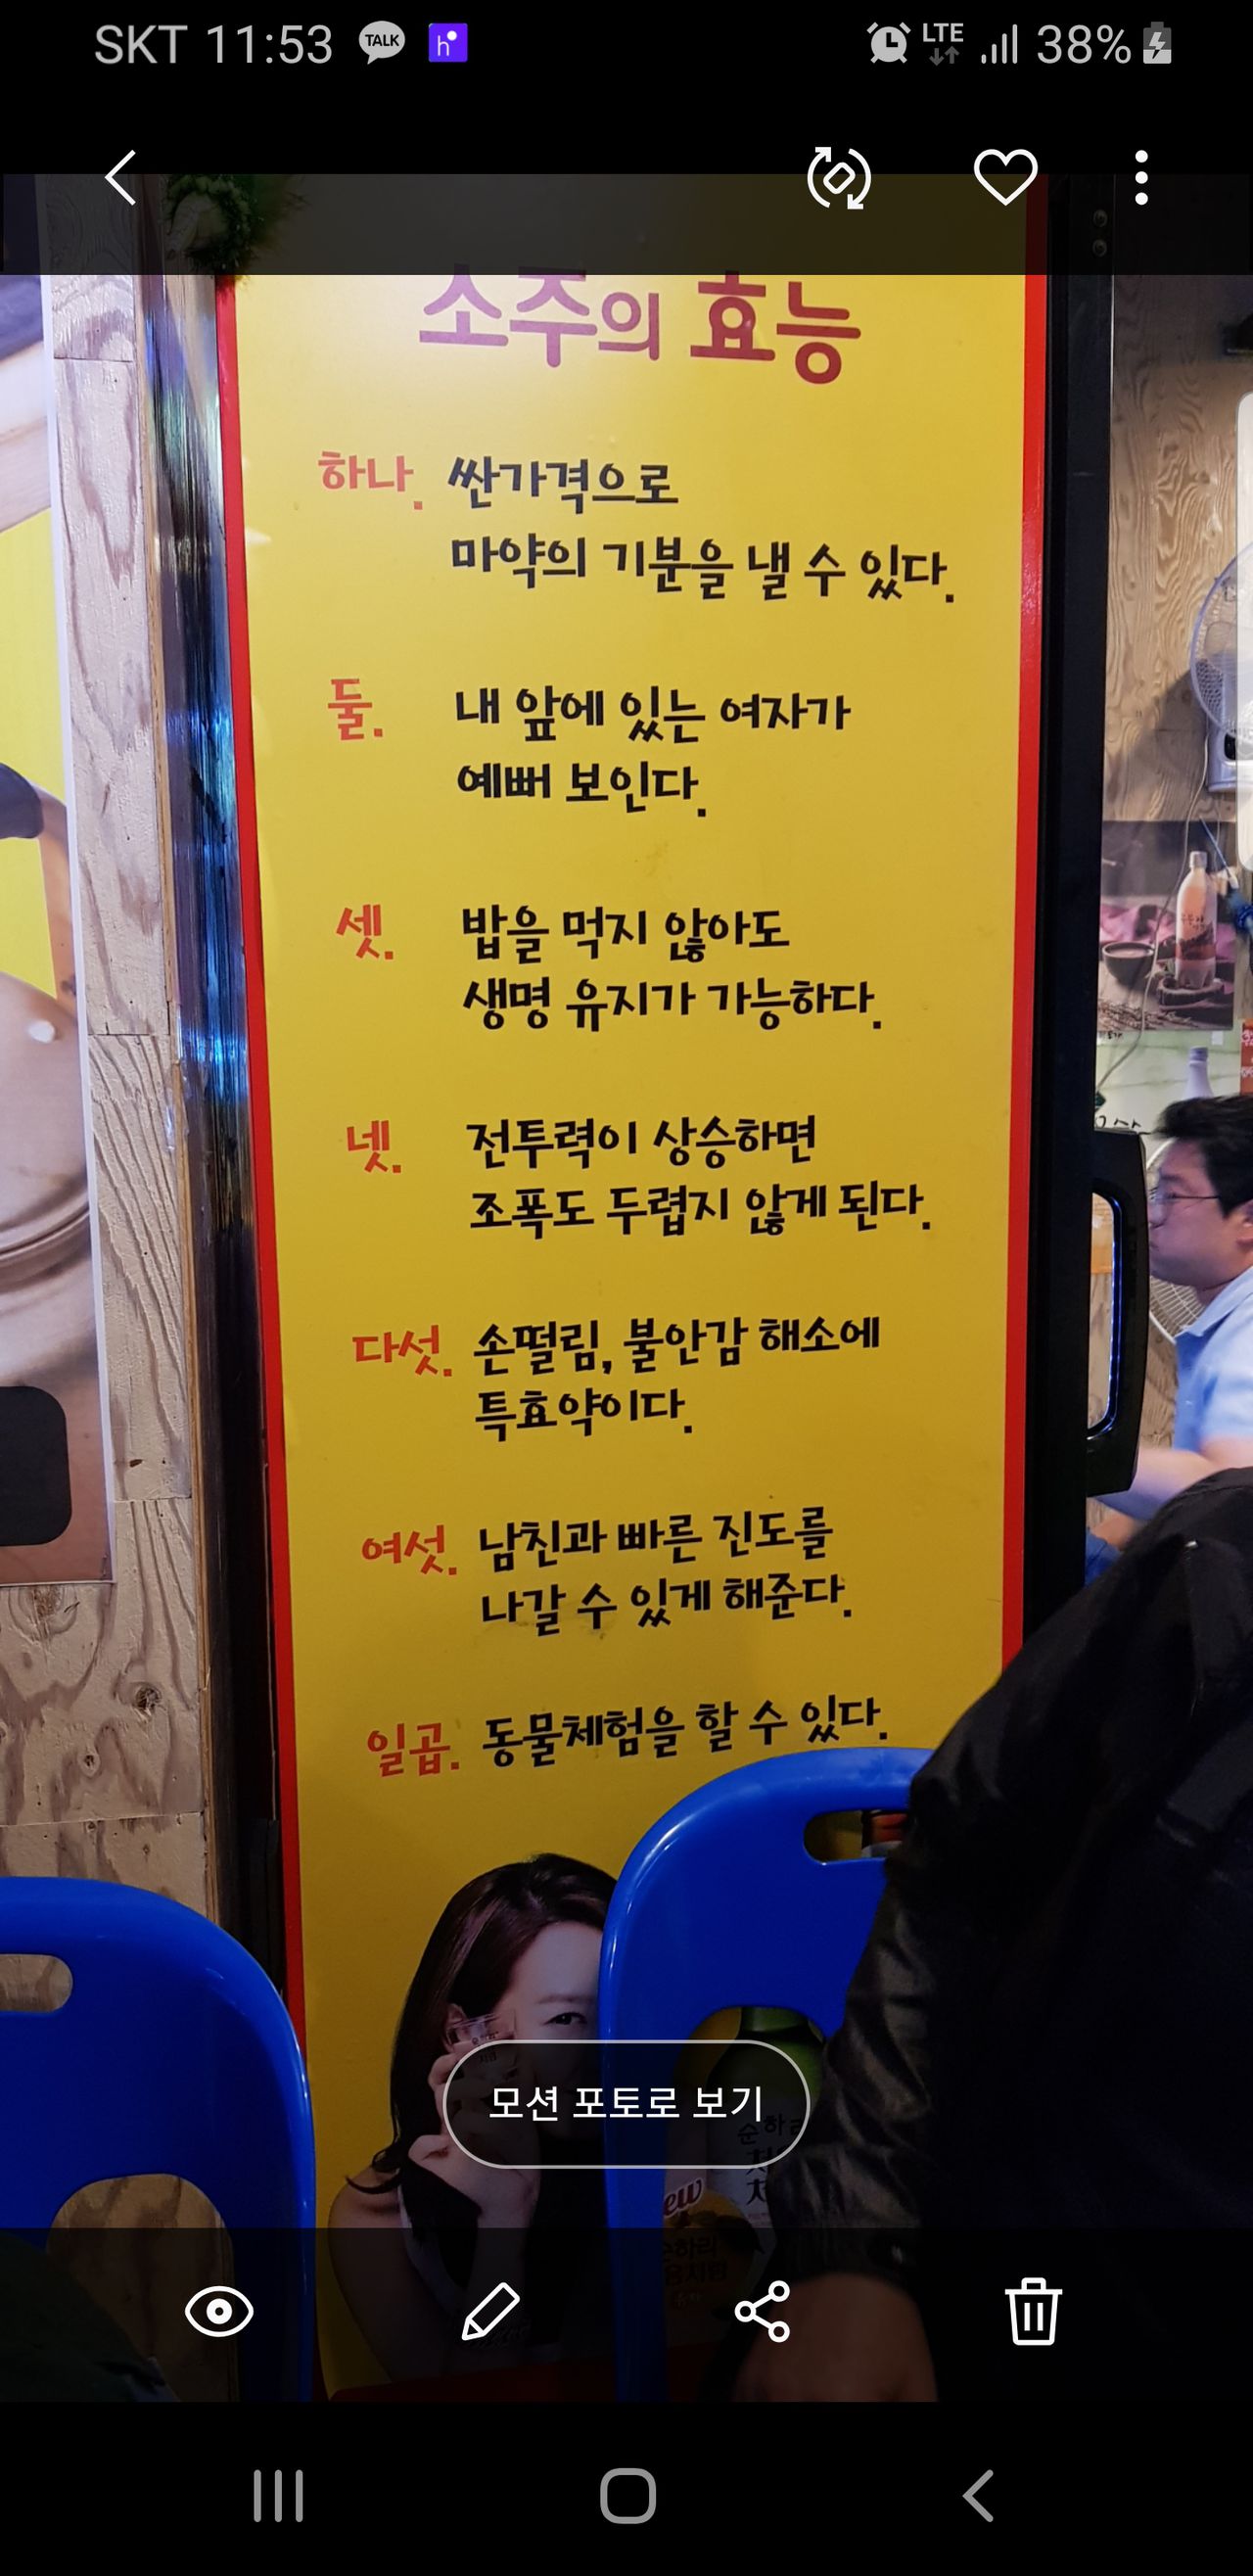 SKT 11:53 TALK h LTE 38%
소주의 효능
하나. 싼가격으로
마약의 기분을 낼 수 있다.
둘. 내 앞에 있는 여자가
예뻐 보인다.
셋. 밥을 먹지 않아도
생명 유지가 가능하다.
넷. 전투력이 상승하면
조폭도 두렵지 않게 된다.
다섯. 손떨림, 불안감 해소에
특효약이다.
여섯. 남친과 빠른 진도를
나갈 수 있게 해준다.
일곱. 동물체험을 할 수 있다.
모션 포토로 보기
순하리
순하리